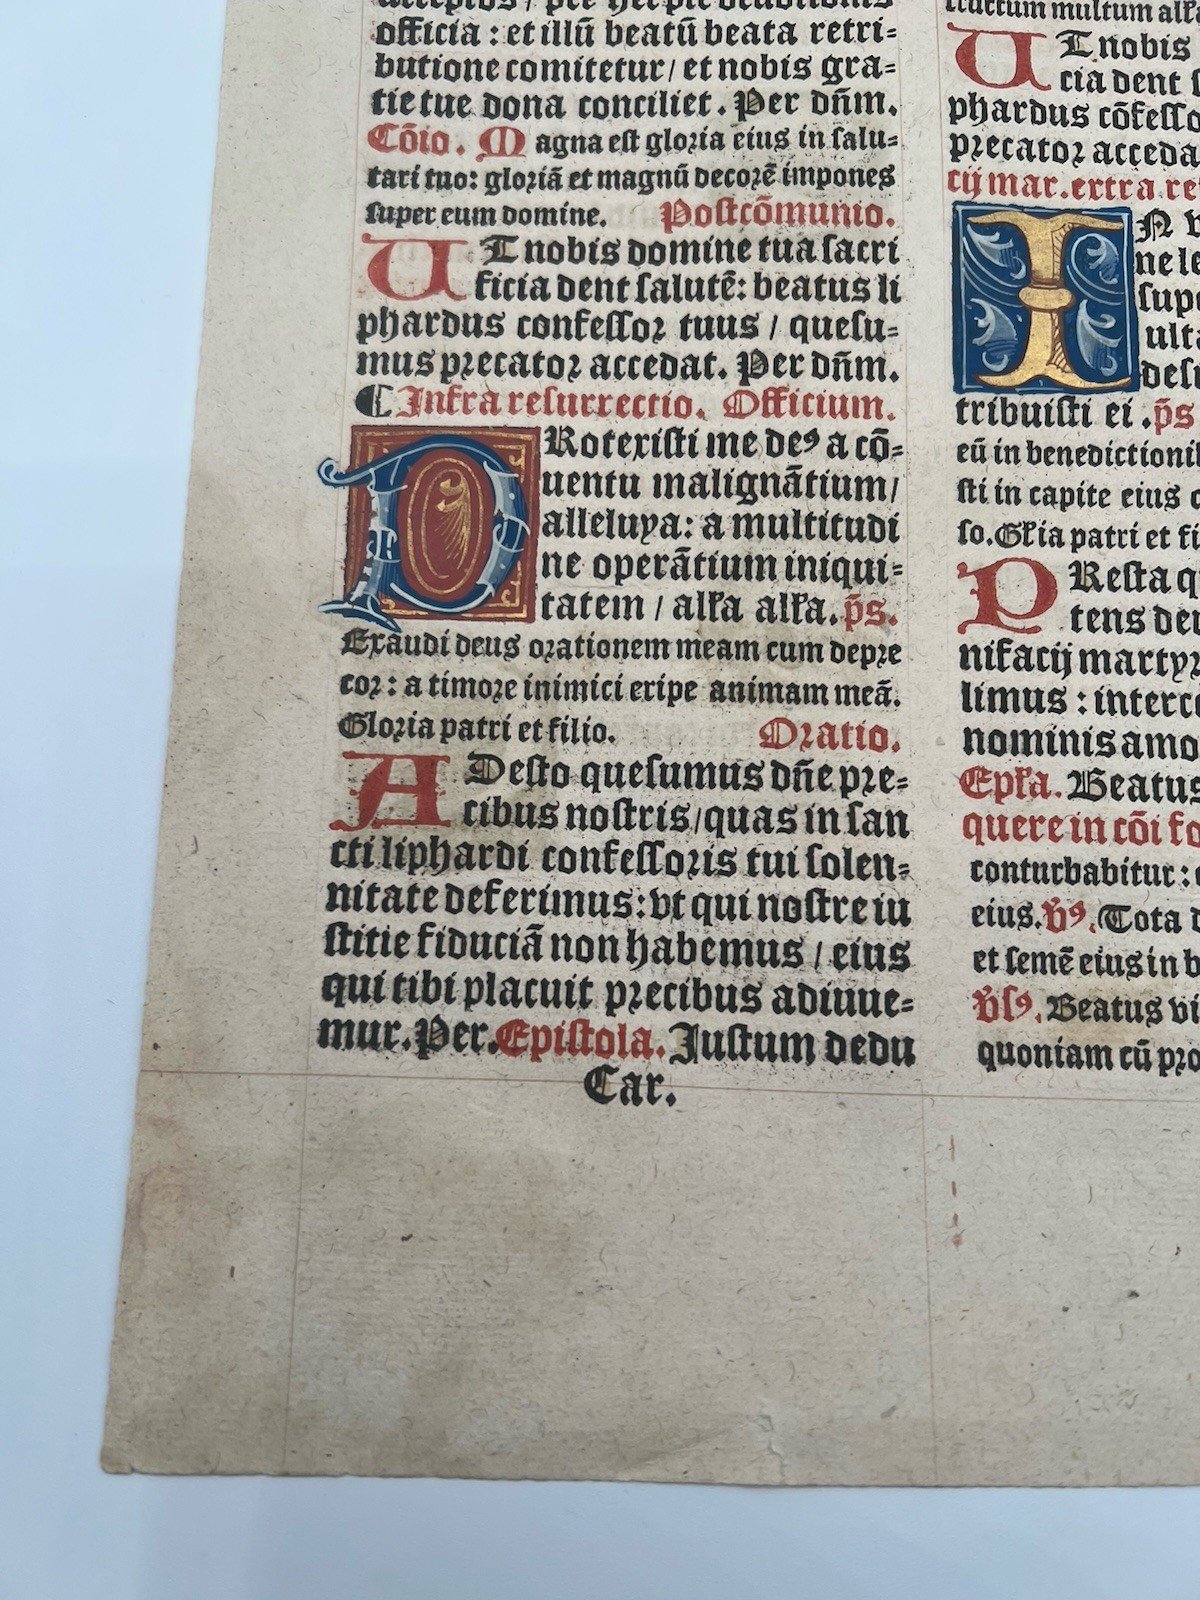 officia : et illū beatū beata retri=
butione comitetur / et nobis gra=
tie tue dona conciliet. Per dn̄m.
Cōio. Magna est gloria eius in salu=
tari tuo: gloriā et magnū decorē impones
super eum domine. Postcōmunio.
UT nobis domine tua sacri
ficia dent salutē: beatus li
phardus confessor tuus / quesu=
mus precator accedat. Per dn̄m.
¶ Infra resurrectio. Officium.
PRotexisti me deꝰ a cō=
uentu malignātium /
alleluya: a multitudi
ne operātium iniqui=
tatem / alľa alľa. p̄s.
Exaudi deus orationem meam cum depre
cor: a timore inimici eripe animam meā.
Gloria patri et filio. Oratio.
ADesto quesumus dn̄e pre=
cibus nostris / quas in san
cti liphardi confessoris tui solen=
nitate deferimus: vt qui nostre iu
stitie fiduciā non habemus / eius
qui tibi placuit precibus adiuue=
mur. Per. Epistola. Justum dedu
Car.
multum
UT nobis
cia dent
phardus cōfesso
precator acceda
cij mar. extra re
IN
ne le
sup
ulta
desi
tribuisti ei . p̄s
eū in benedictioni
sti in capite eius
so. Gľia patri et fi
PResta q
tens de
nifacij martyr
limus : interc
nominis amo
Epľa. Beatus
quere in cōi
conturbabitur :
eius. v̄ꝰ. Tota
et semē eius in b
v̄sꝰ. Beatus vi
quoniam cū pro